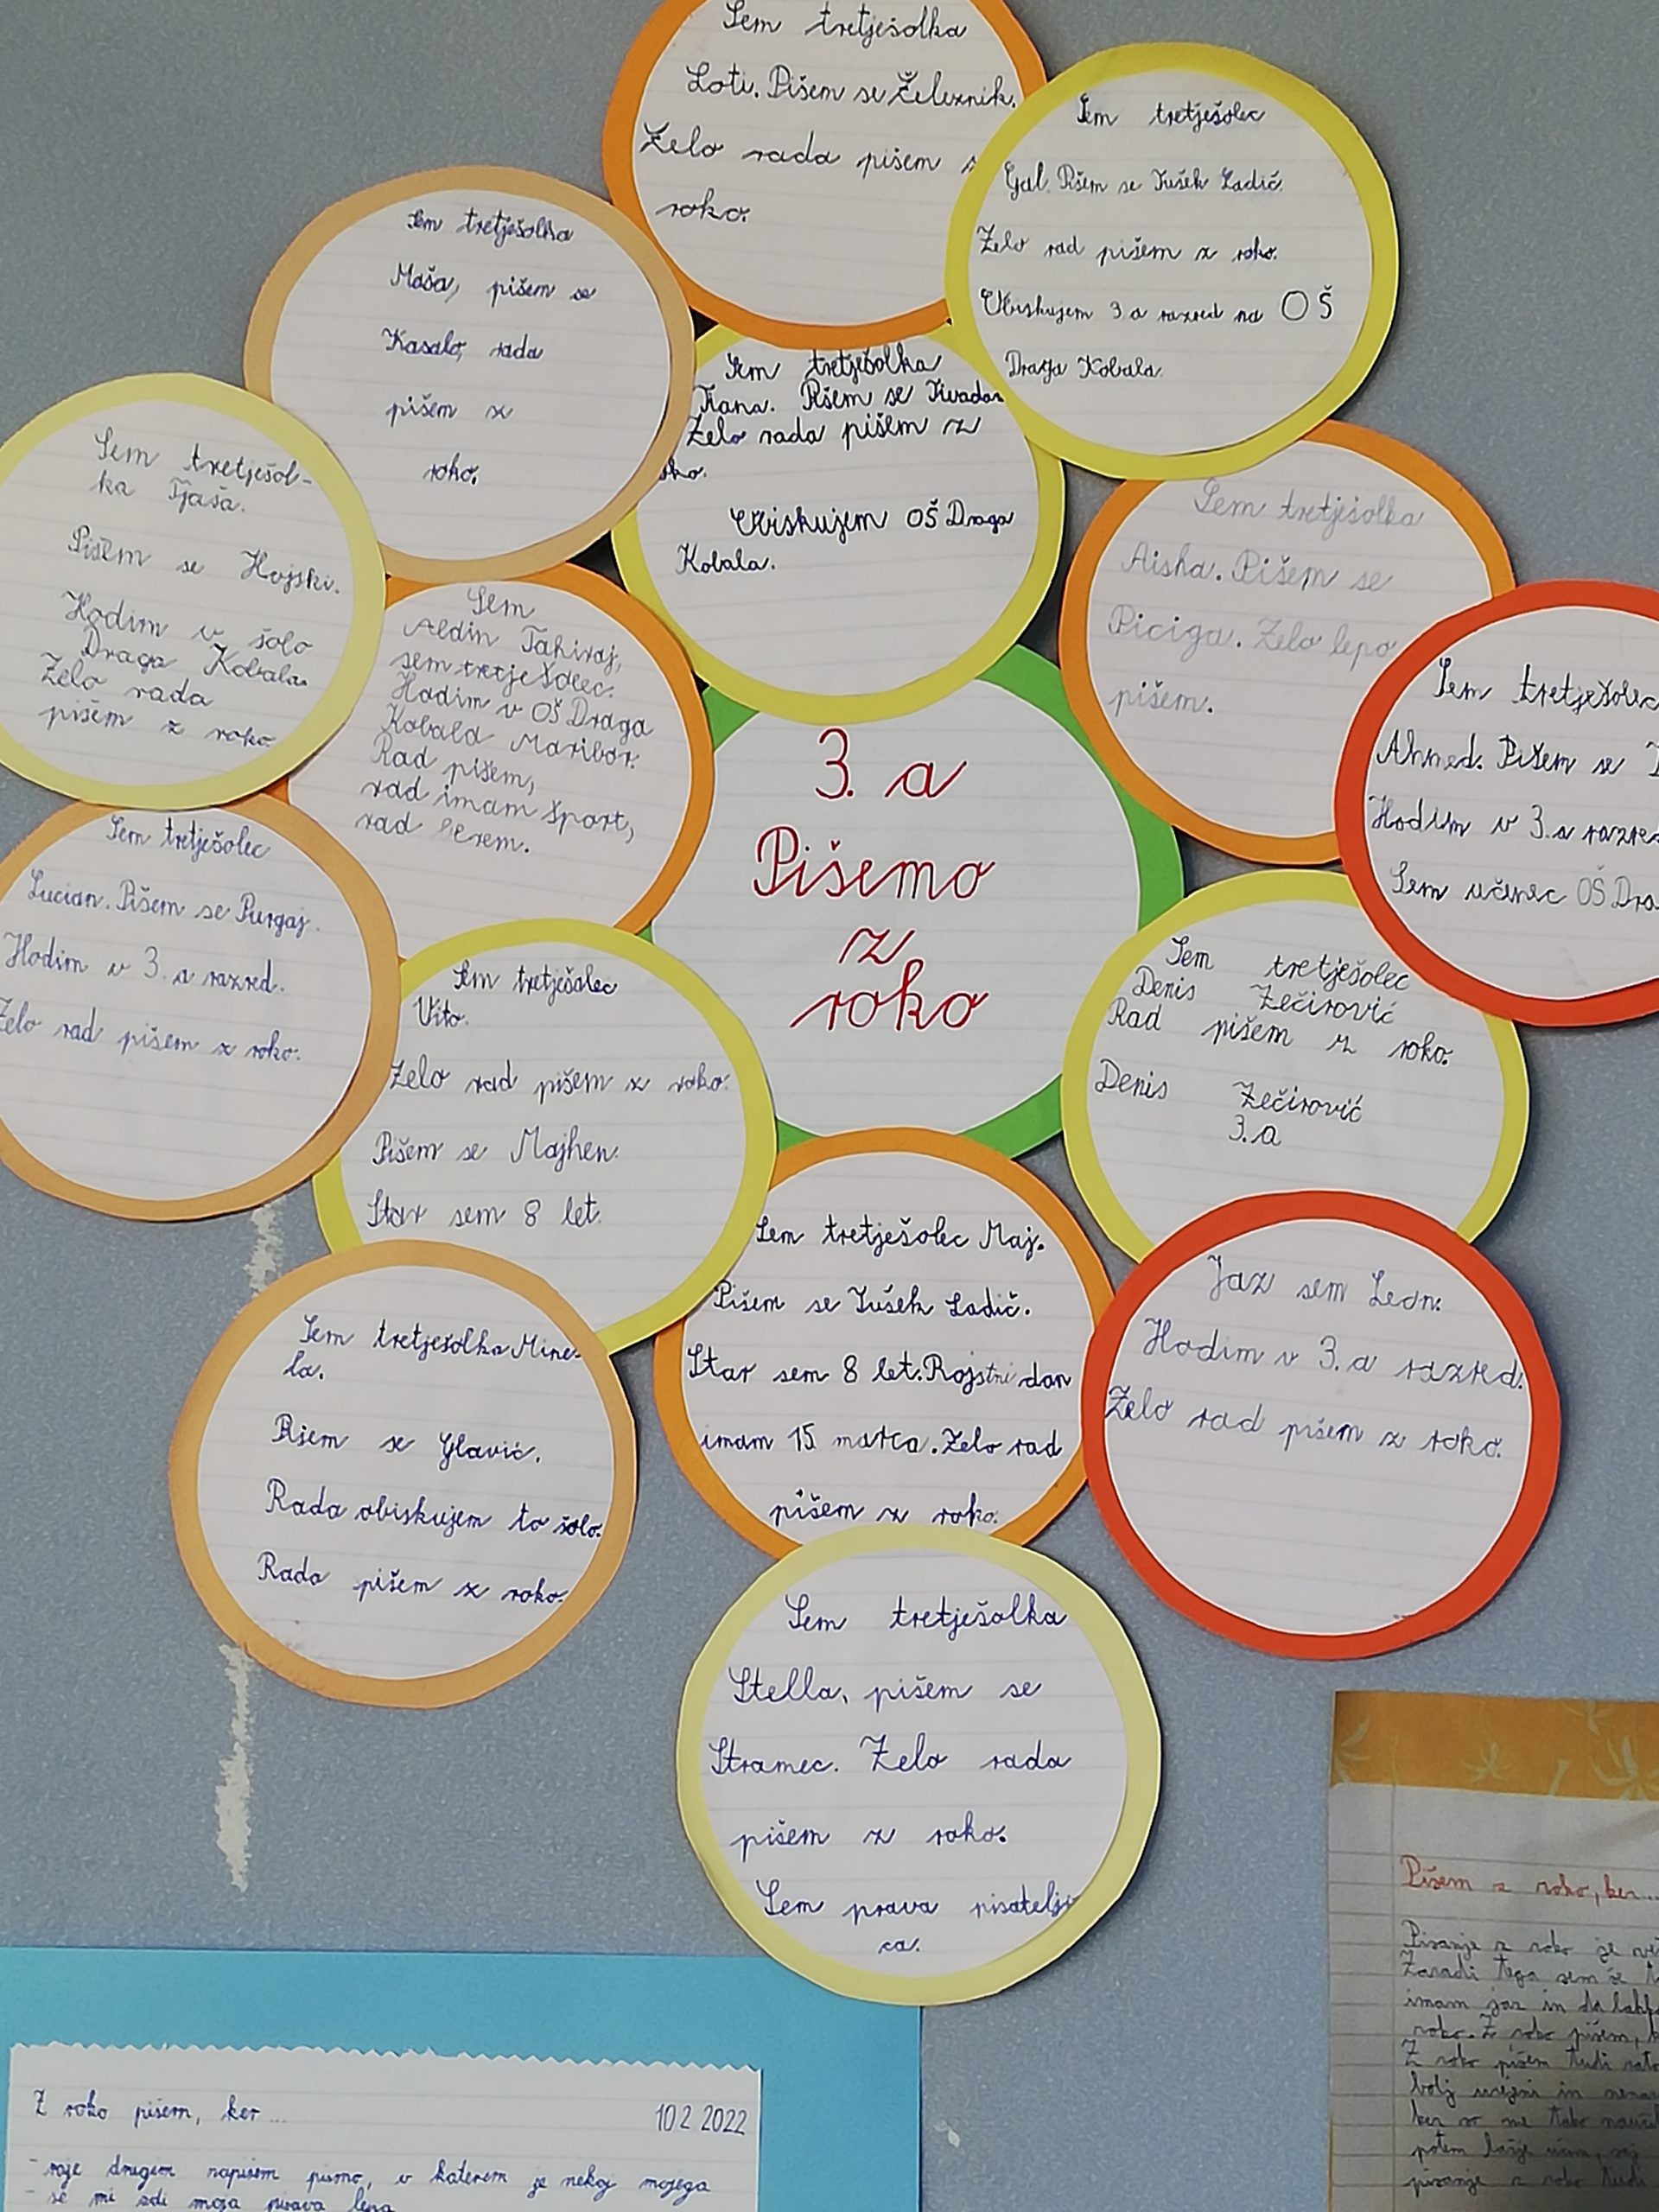 Sem tretješolka
Loti. Pišem se Železnik.
Zelo rada pišem z
roko.
Sem tretješolec
Gal. Pišem se Tušek Ladič.
Zelo rad pišem z roko.
Obiskujem 3. a razred na OŠ
Draga Kobala.
Sem tretješolka
Maša, pišem se
Kasalo, rada
pišem z
roko.
Sem tretješolka
Tiana. Pišem se
Zelo rada pišem z
oko.
Obiskujem OŠ Draga
Kobala.
Sem tretješol-
ka Tjaša.
Pišem se Hojski.
Hodim v šolo
Draga Kobala.
Zelo rada
pišem z roko.
Sem
Aldin Tahiraj,
sem tretješolec.
Hodim v OŠ Draga
Kobala Maribor.
Rad pišem,
rad imam šport,
rad berem.
Sem tretješolka
Aisha. Pišem se
Piciga. Zelo lepo
pišem.
Sem tretješolec
Ahmed. Pišem se
Hodim v 3. a razred
Sem učenec OŠ Dra
3. a
Pišemo
z
roko
Sem tretješolec
Lucian. Pišem se Purgaj.
Hodim v 3. a razred.
Zelo rad pišem z roko.
Sem tretješolec
Vito.
Zelo rad pišem z roko.
Pišem se Majhen.
Star sem 8 let.
Sem tretješolec
Denis Zečirović
Rad pišem z roko.
Denis Zečirović
3. a
Sem tretješolka Mine-
la.
Pišem se Glavić.
Rada obiskujem to šolo.
Rada pišem z roko.
Sem tretješolec Maj.
Pišem se Tušek Ladič.
Star sem 8 let. Rojstni dan
imam 15 marca. Zelo rad
pišem z roko.
Jaz sem Leon.
Hodim v 3. a razred.
Zelo rad pišem z roko.
Sem tretješolka
Stella, pišem se
Stramec. Zelo rada
pišem z roko.
Sem prava pisatelji
ca.
Z roko pišem, ker...
10 2 2022
drugem napišem pismo, v katerem je nekaj mojega
se mi zdi moja pisava lepa
Pišem z roko, ker...
Pisanje z roko je
Zaradi tega sem se
imam jaz in da lahko
roko. Z roko pišem,
Z roko pišem tudi
bolj urejeni in
ker so me tako
potem lažje učim, saj
pisanje z roko tudi